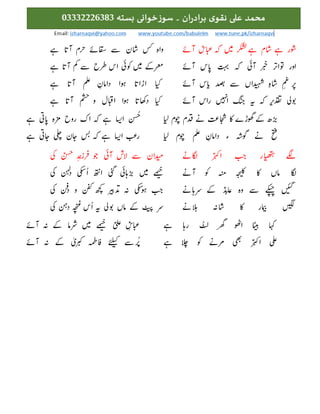 محمد علی نقوی برادران ۔ سوزخوانی بستہ 03332226383
Email: izharnaqvi@yahoo.com www.youtube.com/babulelm www.tune.pk/izharnaqvi
شور ہے شام سے لشکر میں کہ عباسؑ آئے واہ کس شان سے سقائے حرم آتا ہے
اور تواتر خبر آئی کہ بہت پاس آئے معرکے میں کوئی اس طرح سے کم آتا ہے
پر غمِ شاہِ شہیداں سے بصد یاس آئے کیا اڑاتا ہوا دامانِ علم آتا ہے
بولی تقدیر کہ یہ جنگ انہیں راس آئے کیا دکھاتا ہوا اقبال و حشم آتا ہے
بڑھ کے گھوڑے کا شجاعت نے قدم چوم لیا حُسن ہے ایسا کہ اک روح مزہ پاتی ہے
فتح نے گوشہ ءِ دامانِ علم چوم لیا رعب ہے ایسا کہ بس جان چلی جاتی ہے
لگے ہتھیار جب اکبرؑ لگانے میدان سے لاش آئی جو فرزندِ حسنؑ کی
لگا ماں کا کلیجہ منہ کو آنے خیمے میں بڑھائی گئی اُس کی دلہن کی
گئیں چپکے سے وہ عابدؑ کے سرہانے جب ہوسکی نہ تدبیر کچھ کفن و دفن کی
لگیں بیمار کا شانہ ہلانے سر پیٹ کے ماں بولی یہ اُس غنچہ دہن کی
کہا بیٹا اٹھو گھر لٹ رہا ہے عباسؑ علیؑ خیمے میں شرما کے نہ آئے
علی اکبرؑ بھی مرنے کو چلا ہے پُرسے کیلئے فاطمہؑ کبریٰ کے نہ آئے